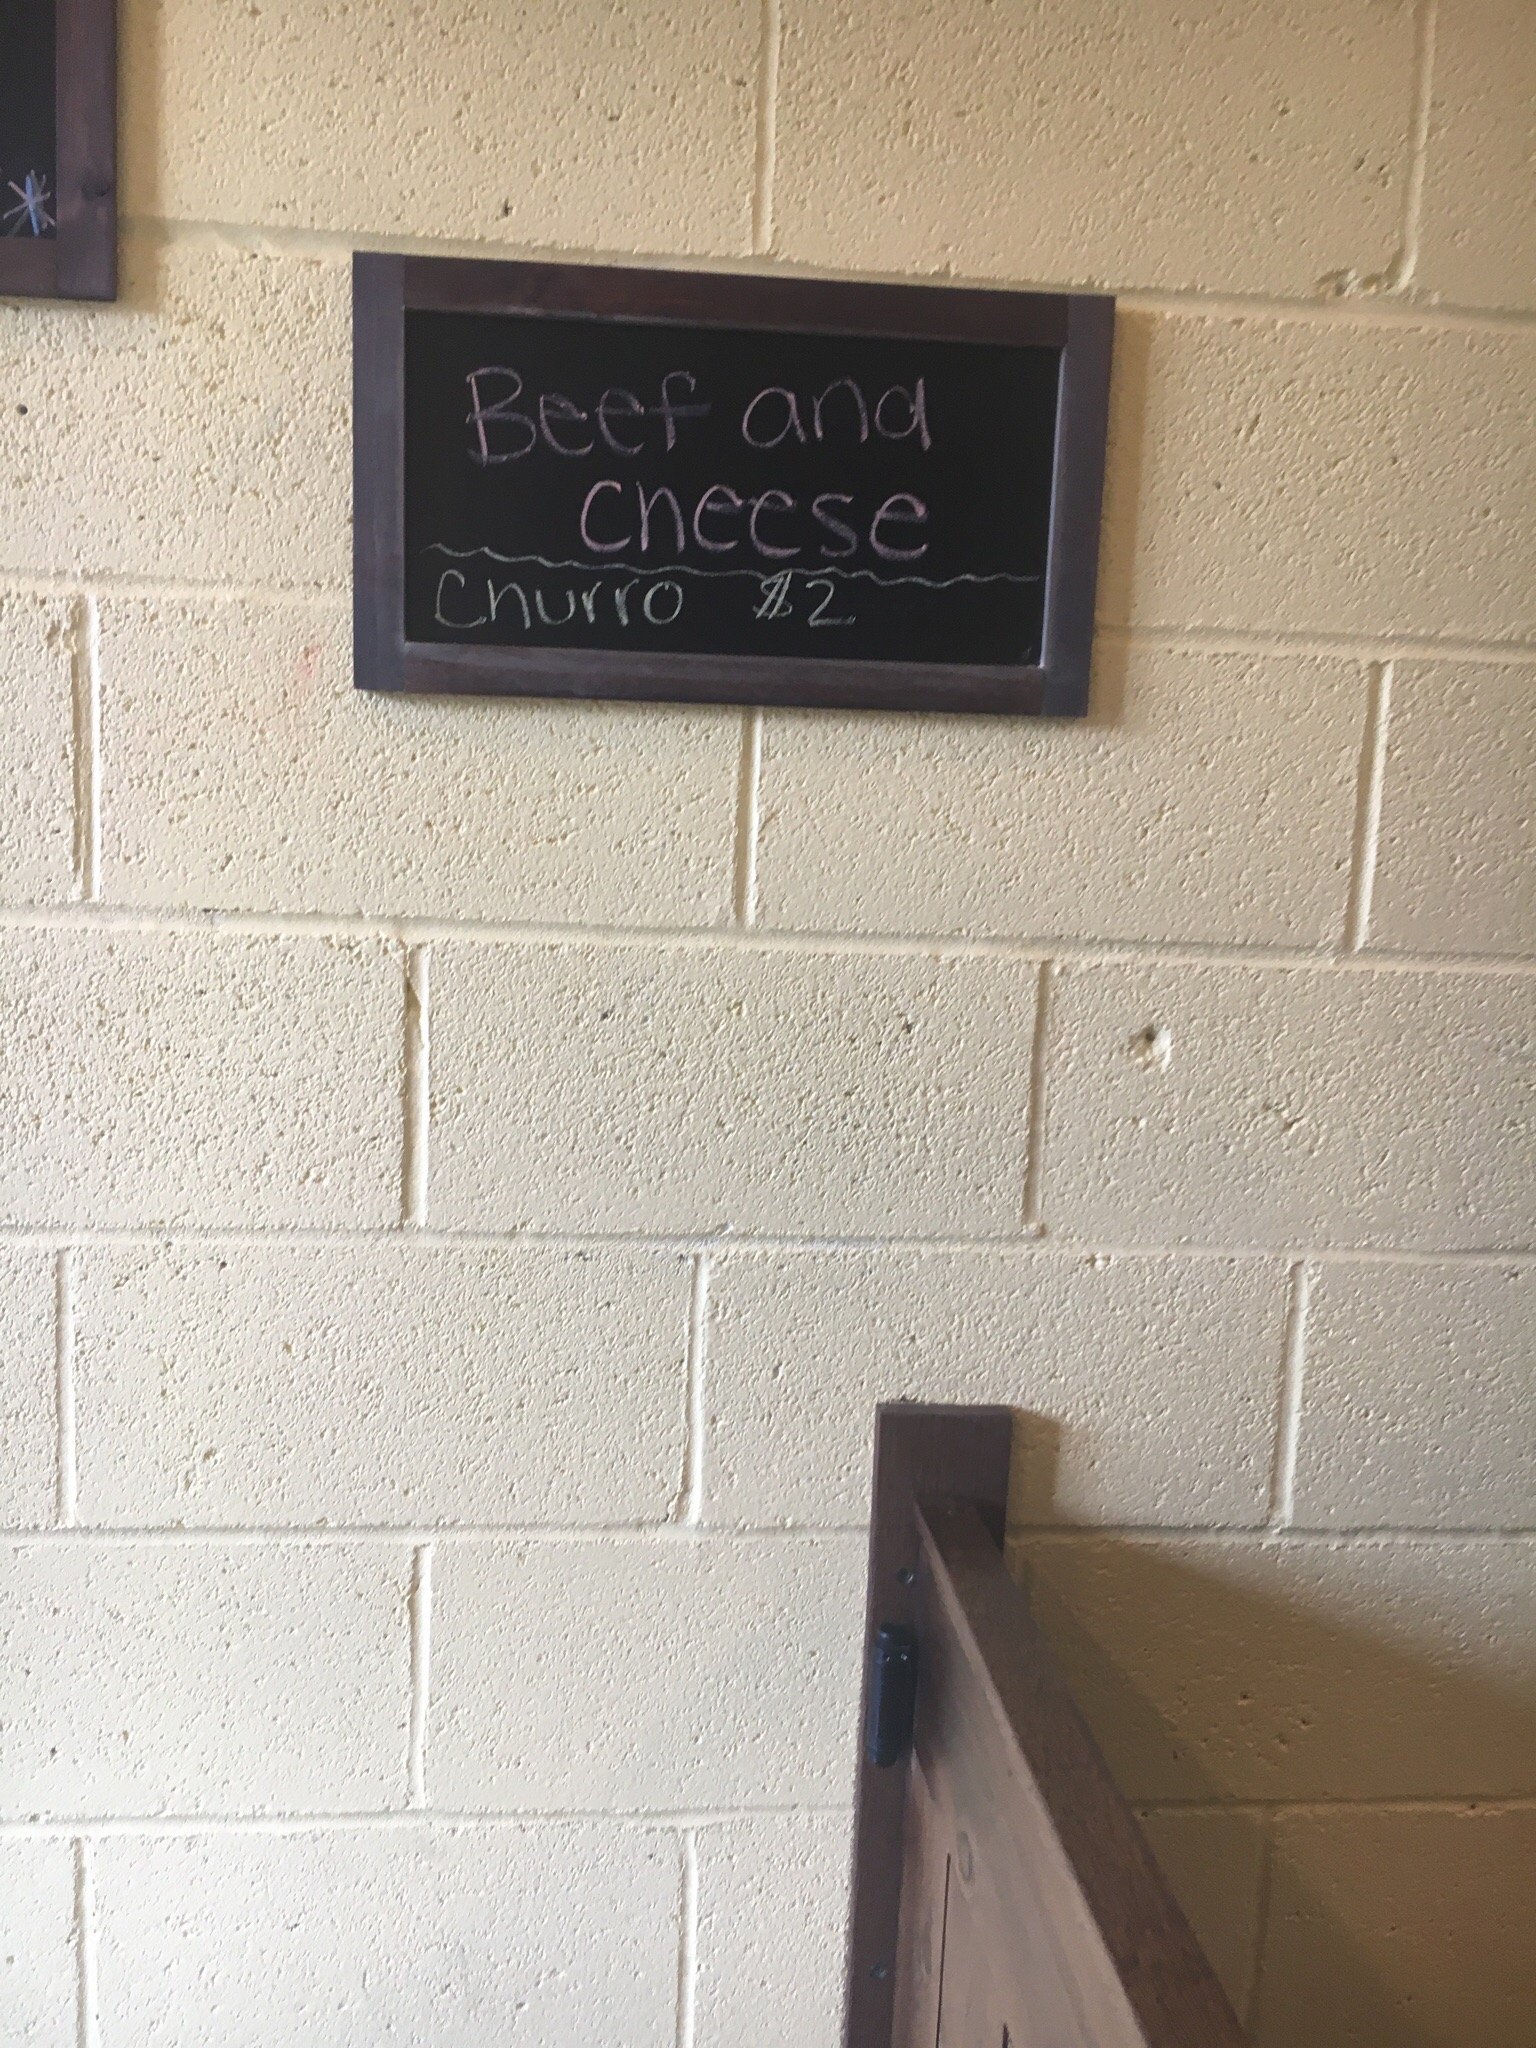 Beef and
cheese
Churro $2